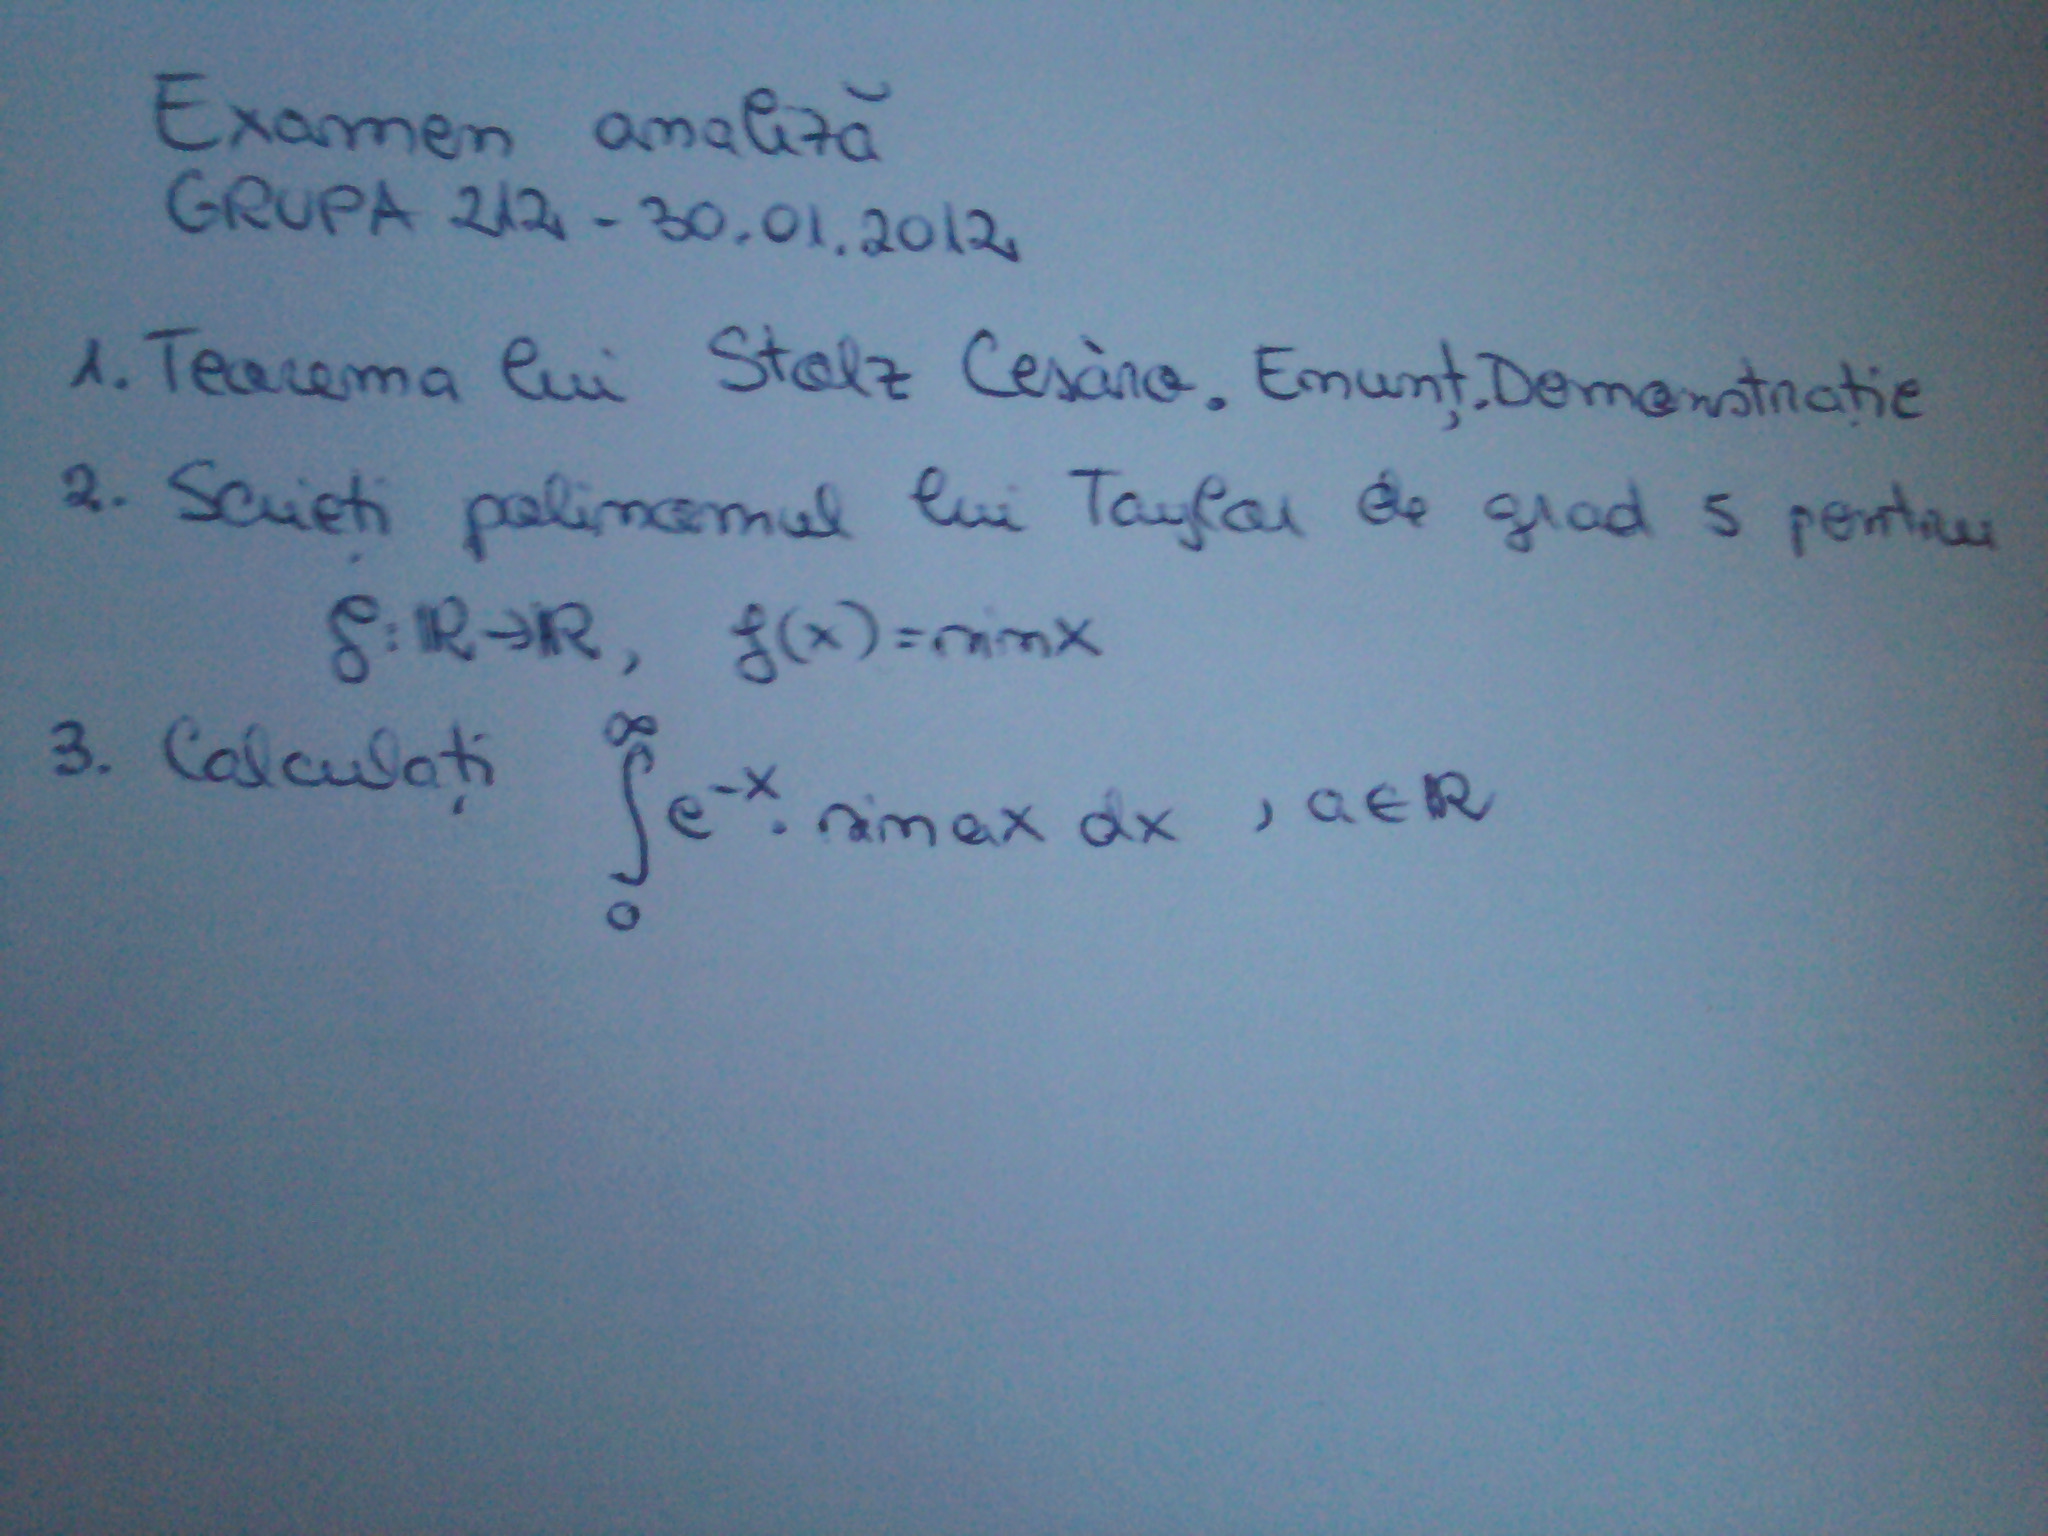 Examen analiză
GRUPA 212 - 30.01.2012
1. Teorema lui Stolz Cesàro. Enunț. Demonstrație
2. Scrieți polinomul lui Taylor de grad 5 pentru
f: ℝ→ℝ, f(x)=sinx
3. Calculați ∫₀^∞ e^{-x} · sin ax dx , a∈ℝ